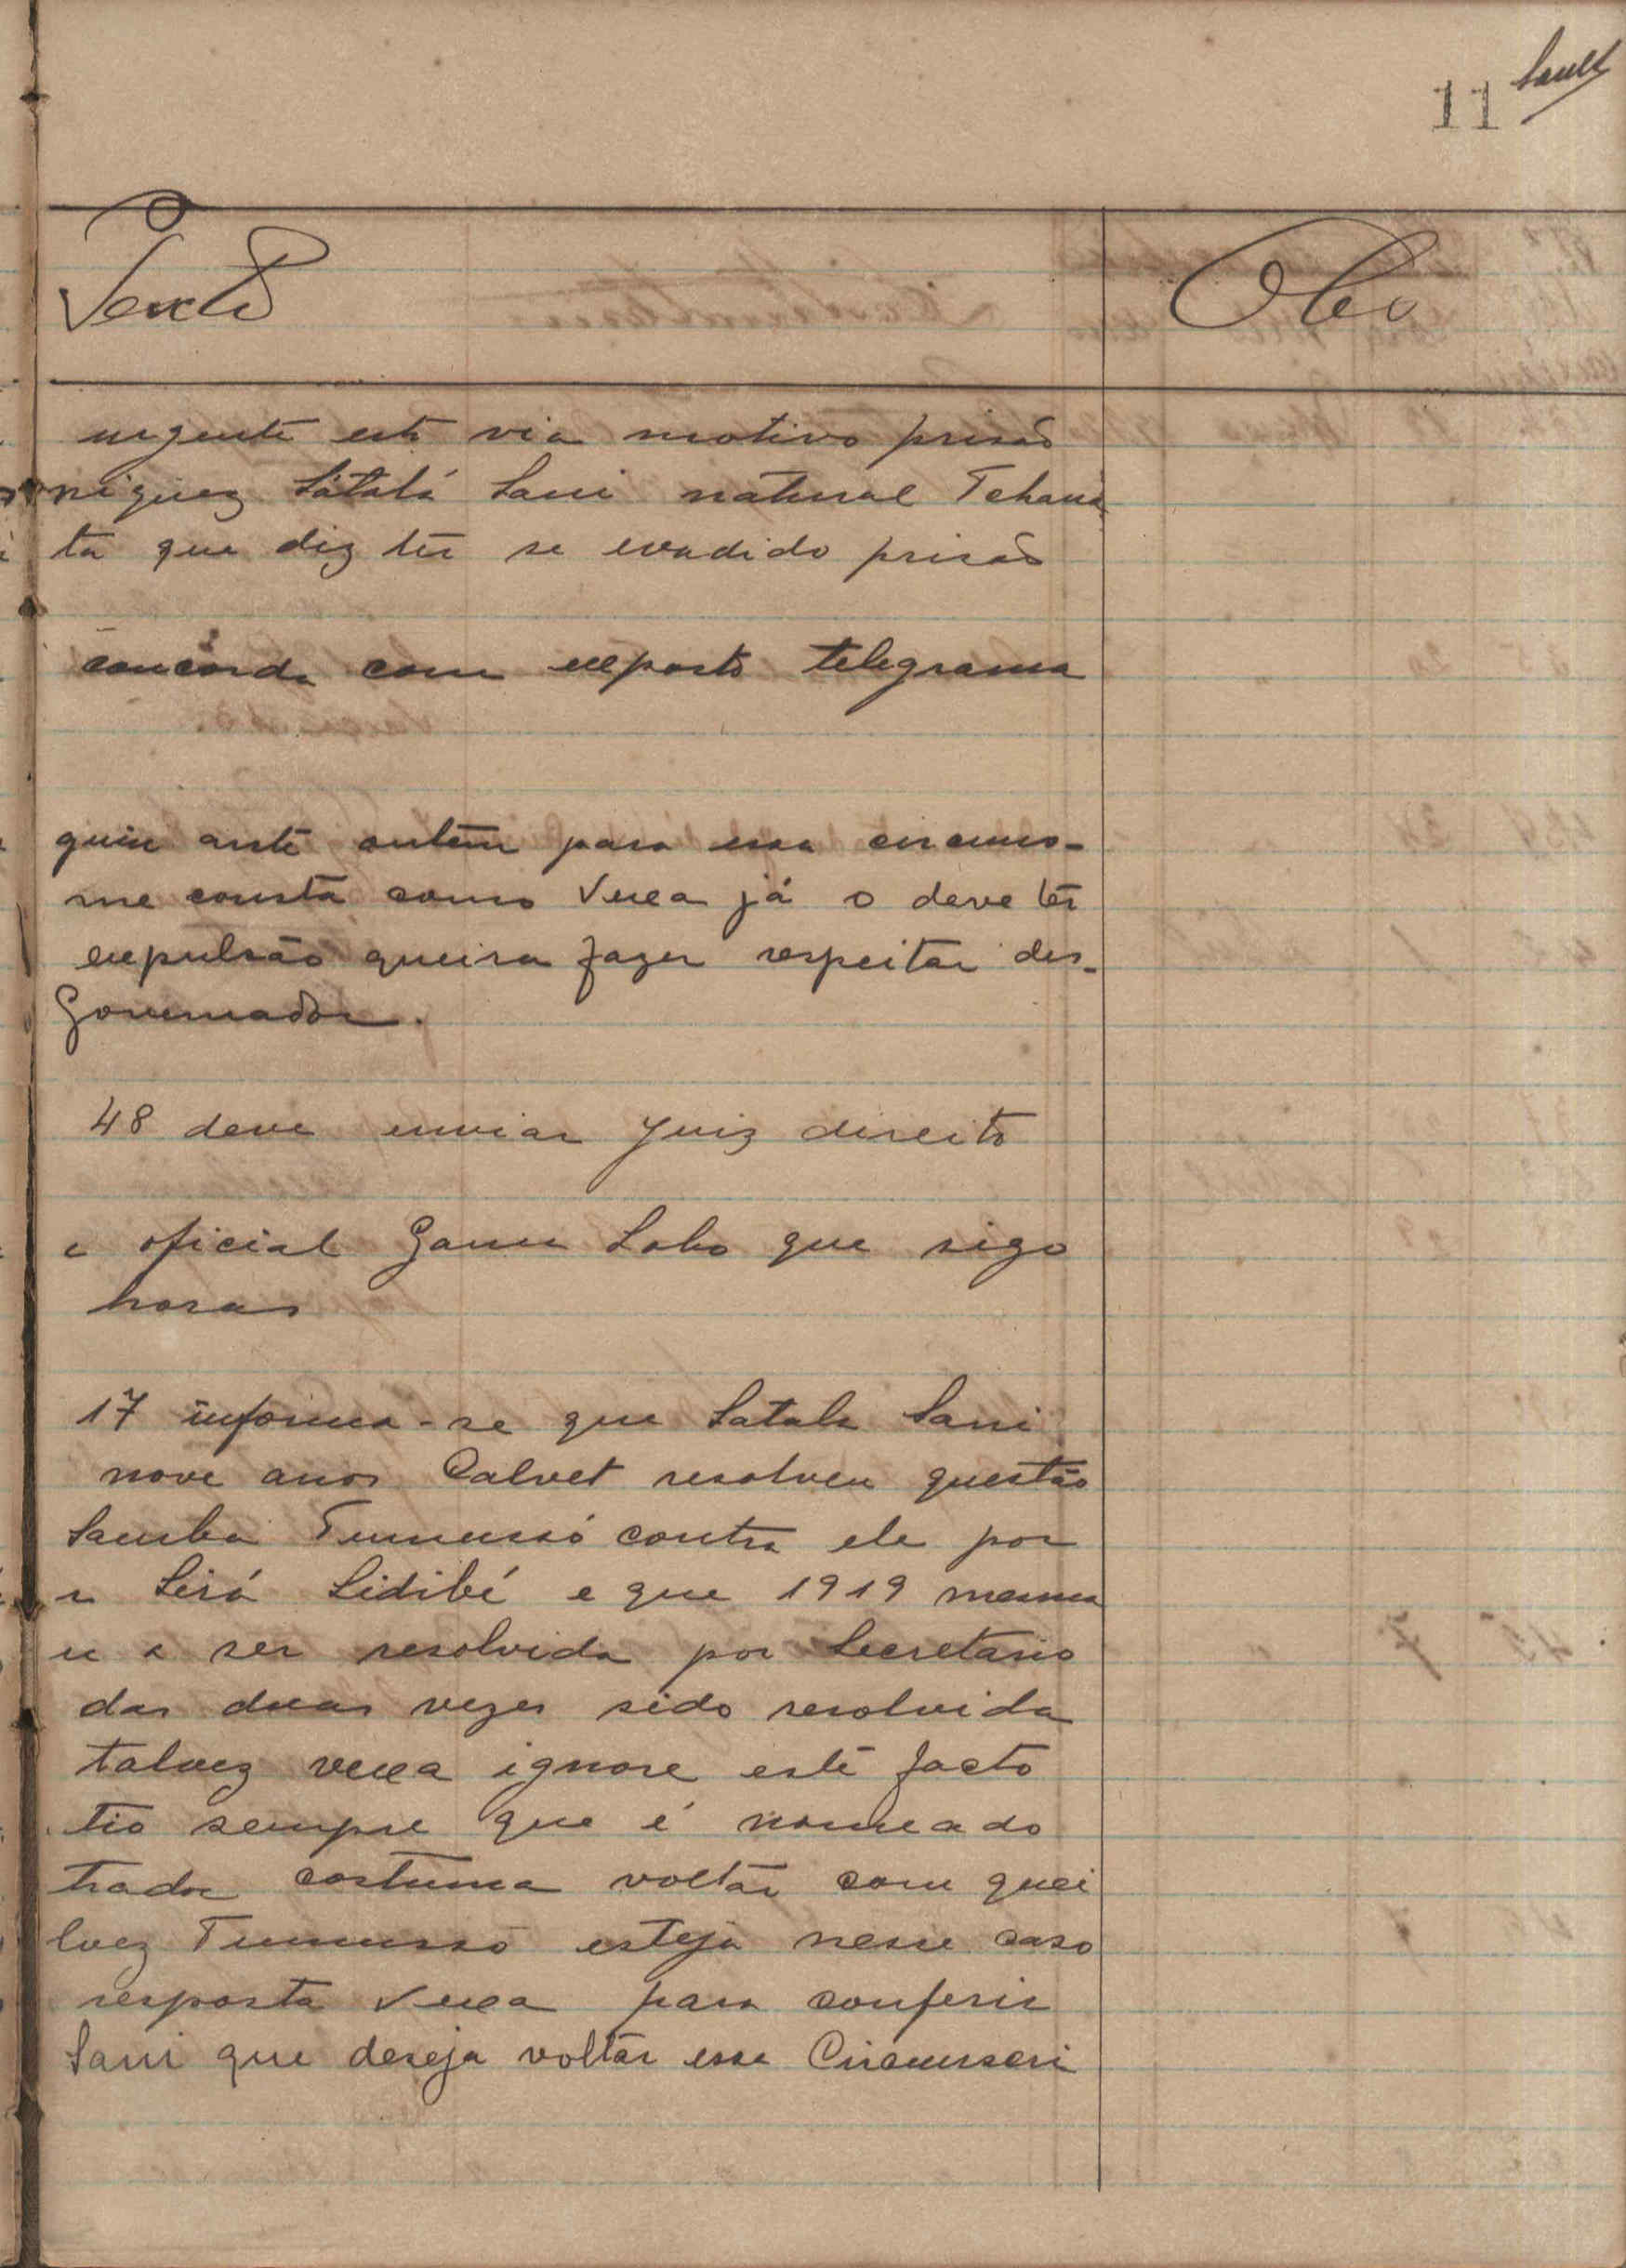 11
Texto
Obs
urgente esta via motivo prisão
niguez Sátalá Sani natural Tchaná
ta que diz ter se evadido prisão
concorda com exposto telegrama
guiu ante ontem para essa circuns-
me consta como Vexa já o deve ter
expulsão queira fazer respeitar des-
Governador.
48 deve enviar Juiz direito
e oficial Gama Lobo que sigo
horas
17 informa-se que Satala Sani
nove anos Calvet resolveu questão
Samba Tumussó contra ele por
Sirá Sidibé e que 1919 mesma
u a ser resolvida por Secretario
das duas vezes sido resolvida
talvez vexa ignore este facto
tio sempre que é nomeado
trador costuma voltar com quei
lvez Tumussó esteja nesse caso
resposta Vexa para conferir
Sani que deseja voltar essa Circunscri